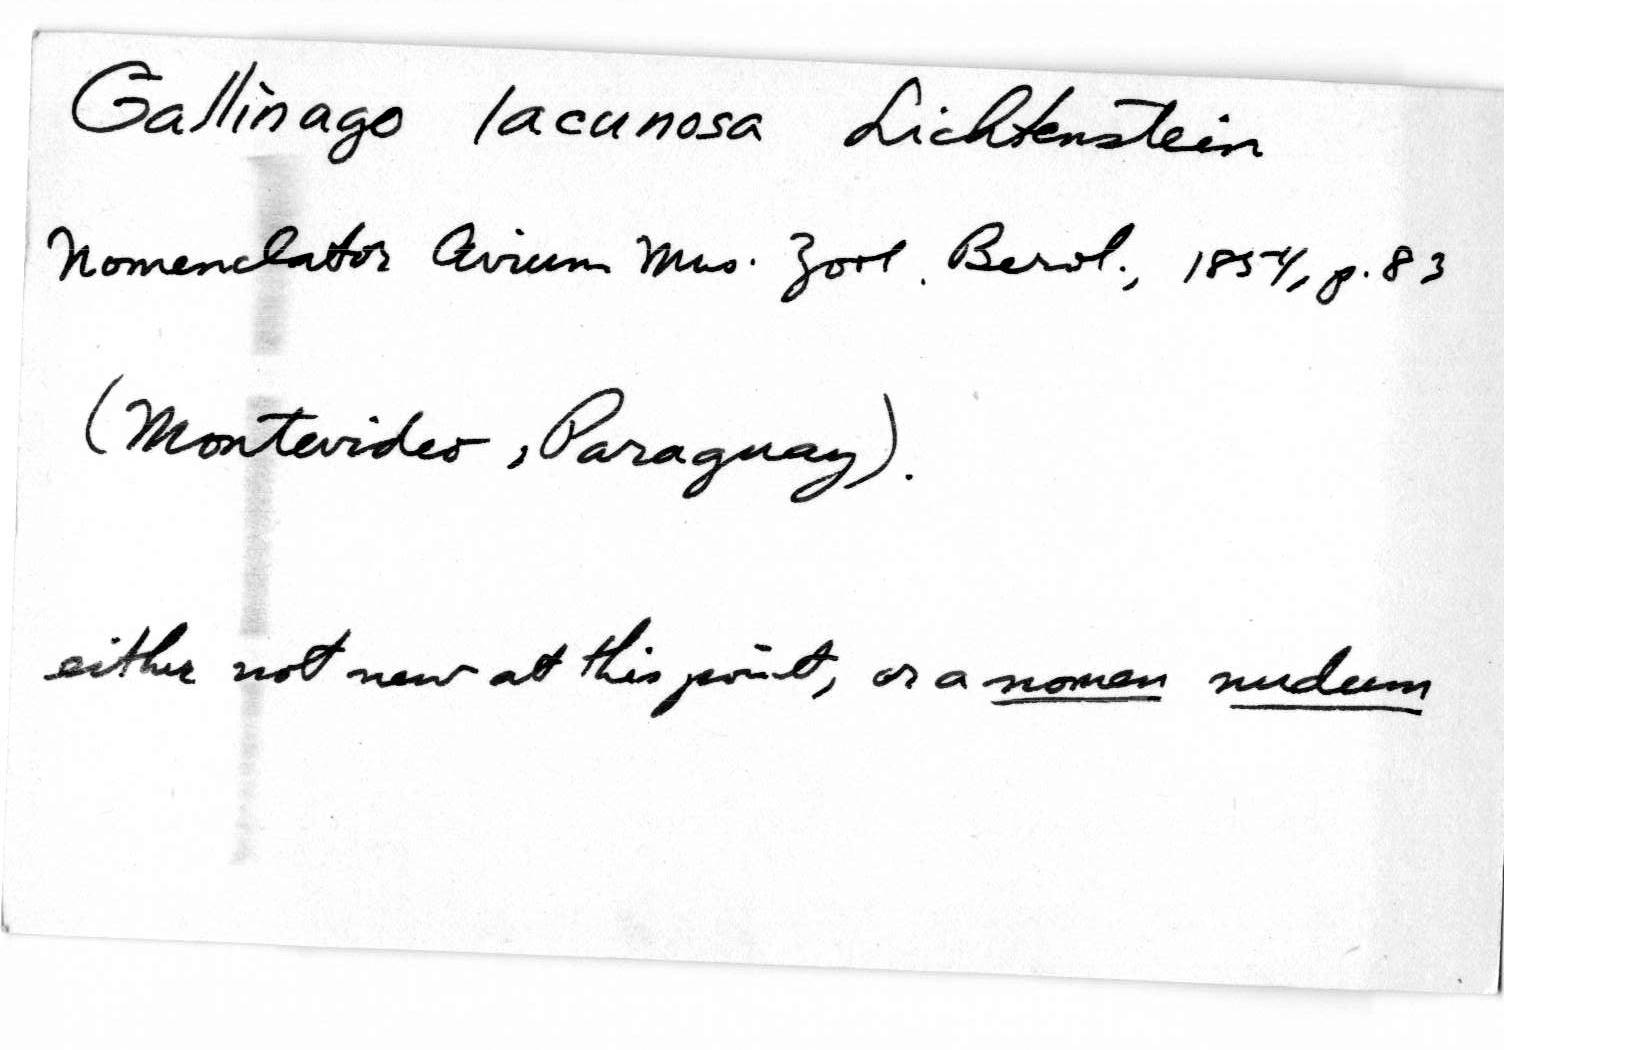 Gallinago lacunosa Lichtenstein
Nomenclator Avium Mus. Zool. Berol., 1854, p. 83
(Montevideo, Paraguay).
either not new at this point, or a nomen nudum